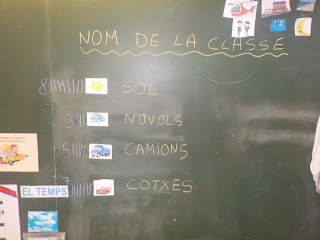 NOM DE LA CLASSE
8 |||||||| SOL
3 ||| NUVOLS
5 ||||| CAMIONS
7 ||||||| COTXES
EL TEMPS